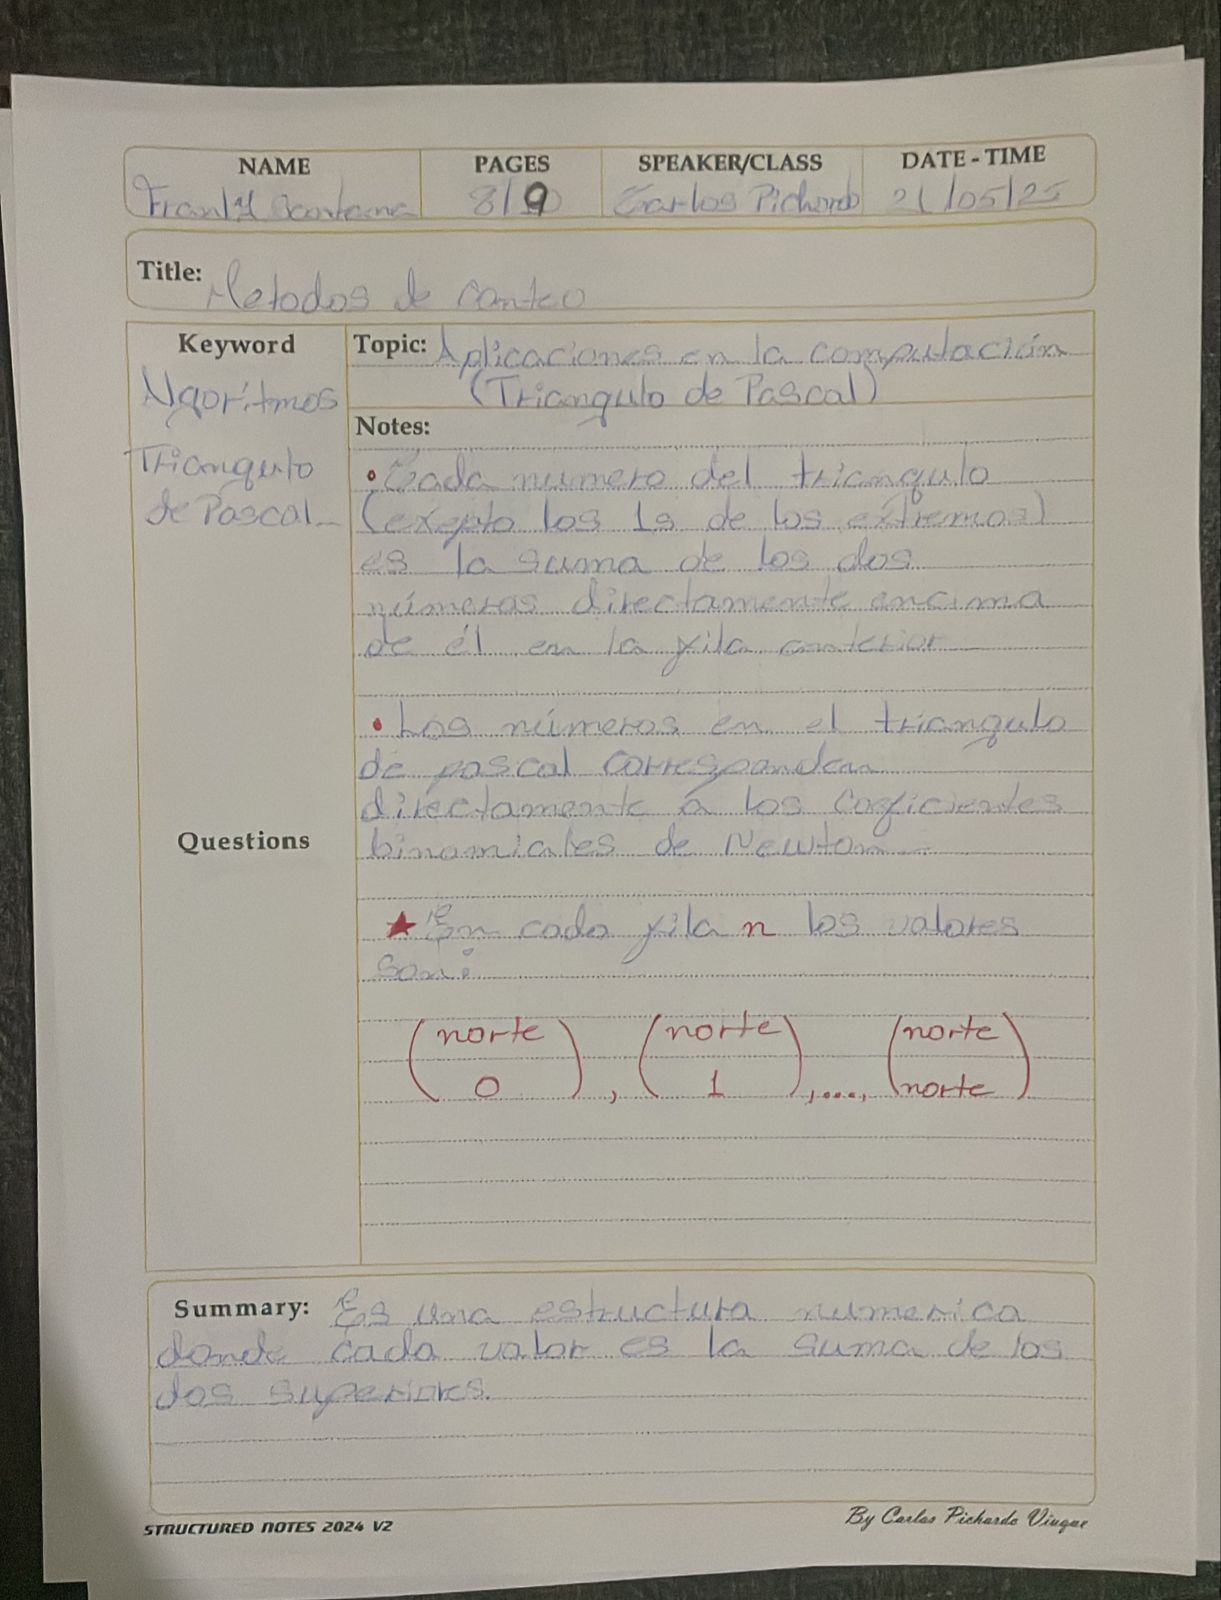 NAME PAGES SPEAKER/CLASS DATE - TIME
Santana 8/9 Carlos Pichardo 21/05/25
Title: Metodos de conteo
Keyword
Algoritmos
Triangulo
de Pascal
Questions
Topic: Aplicaciones en la computación
(Triangulo de Pascal)
Notes:
• Cada numero del triangulo
(exepto los 1s de los extremos)
es la suma de los dos
números directamente encima
de él en la fila anterior
• Los números en el triangulo
de pascal corresponden
directamente a los coeficientes
binomiales de Newton
★ En cada fila n los valores
son:
(norte 0), (norte 1),...., (norte norte)
Summary: Es una estructura numerica
donde cada valor es la suma de los
dos superiores.
STRUCTURED NOTES 2024 V2
By Carlos Pichardo Viuque